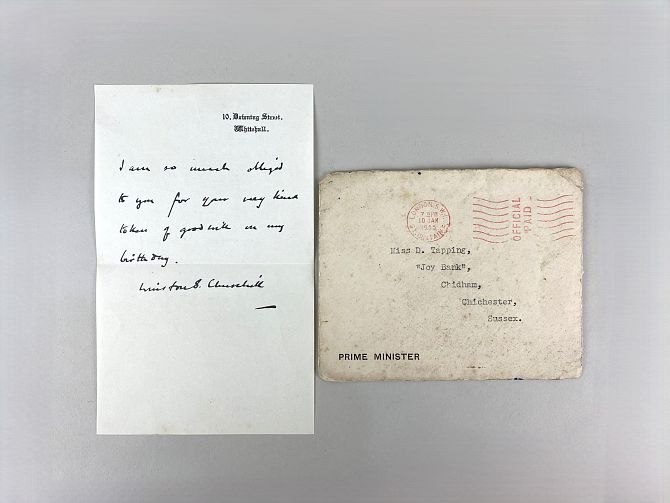 10, Downing Street,
Whitehall.
I am so much obliged
to you for your very kind
token of goodwill on my
birthday.
Winston S. Churchill
LONDON S.W.1
7 30 PM
10 JAN
1955
OFFICIAL
PAID
Miss D. Tapping,
"Joy Bank",
Chidham,
Chichester,
Sussex.
PRIME MINISTER